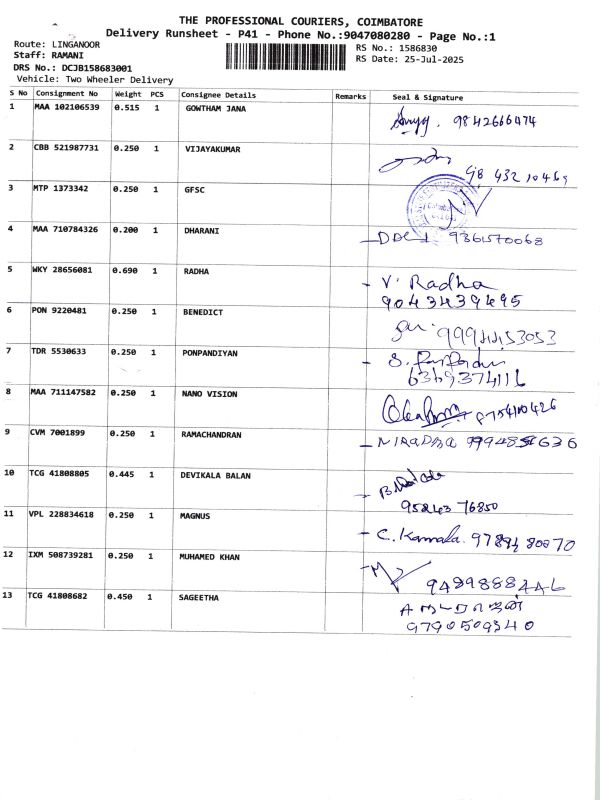 THE PROFESSIONAL COURIERS, COIMBATORE
Delivery Runsheet - P41 - Phone No.:9047080280 - Page No.:1
Route: LINGANOOR
RS No.: 1586830
Staff: RAMANI
RS Date: 25-Jul-2025
DRS No.: DCJB158683001
Vehicle: Two Wheeler Delivery
S No Consignment No Weight PCS Consignee Details Remarks Seal & Signature
1 MAA 102106539 0.515 1 GOWTHAM JANA 9842666474
2 CBB 521987731 0.250 1 VIJAYAKUMAR 98 432 10469
3 MTP 1373342 0.250 1 GFSC
4 MAA 710784326 0.200 1 DHARANI 9361570068
5 WKY 28656081 0.690 1 RADHA V. Radha
9043439495
6 PON 9220481 0.250 1 BENEDICT
7 TDR 5530633 0.250 1 PONPANDIYAN
6369374116
8 MAA 711147582 0.250 1 NANO VISION 9754100426
9 CVM 7001899 0.250 1 RAMACHANDRAN
10 TCG 41808805 0.445 1 DEVIKALA BALAN
95243 76850
11 VPL 228834618 0.250 1 MAGNUS C. Kamala.
12 IXM 508739281 0.250 1 MUHAMED KHAN
9489888446
13 TCG 41808682 0.450 1 SAGEETHA
9790509340